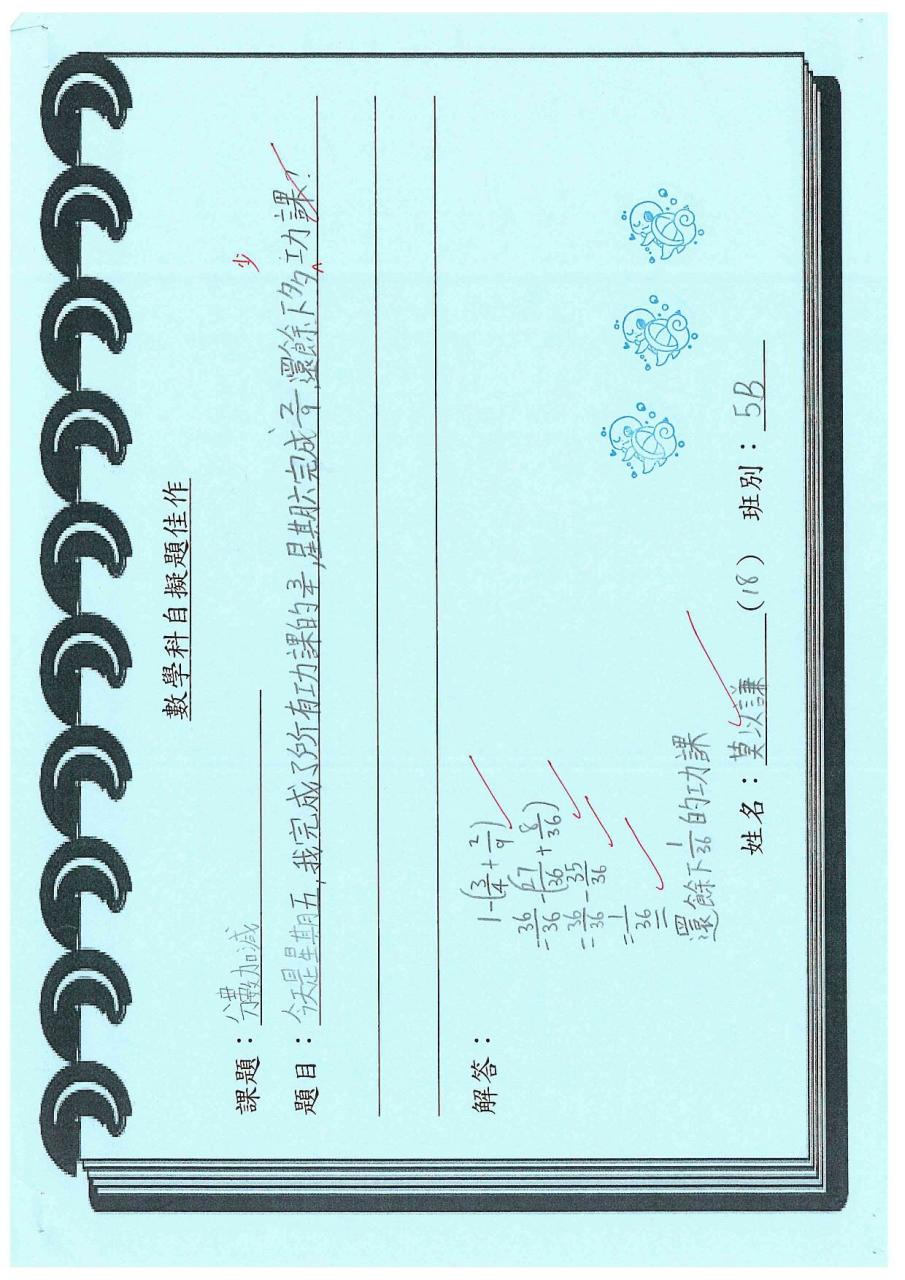 數學科自擬題佳作
課題：分數加減
題目：今天是星期五,我完成了所有功課的3/4,星期六完成2/9,還餘下多功課?
少
解答：
1-(3/4+2/9)
=36/36-(27/36+8/36)
=36/36-35/36
=1/36
還餘下1/36的功課
姓名：莫以謙 (18) 班別：5B